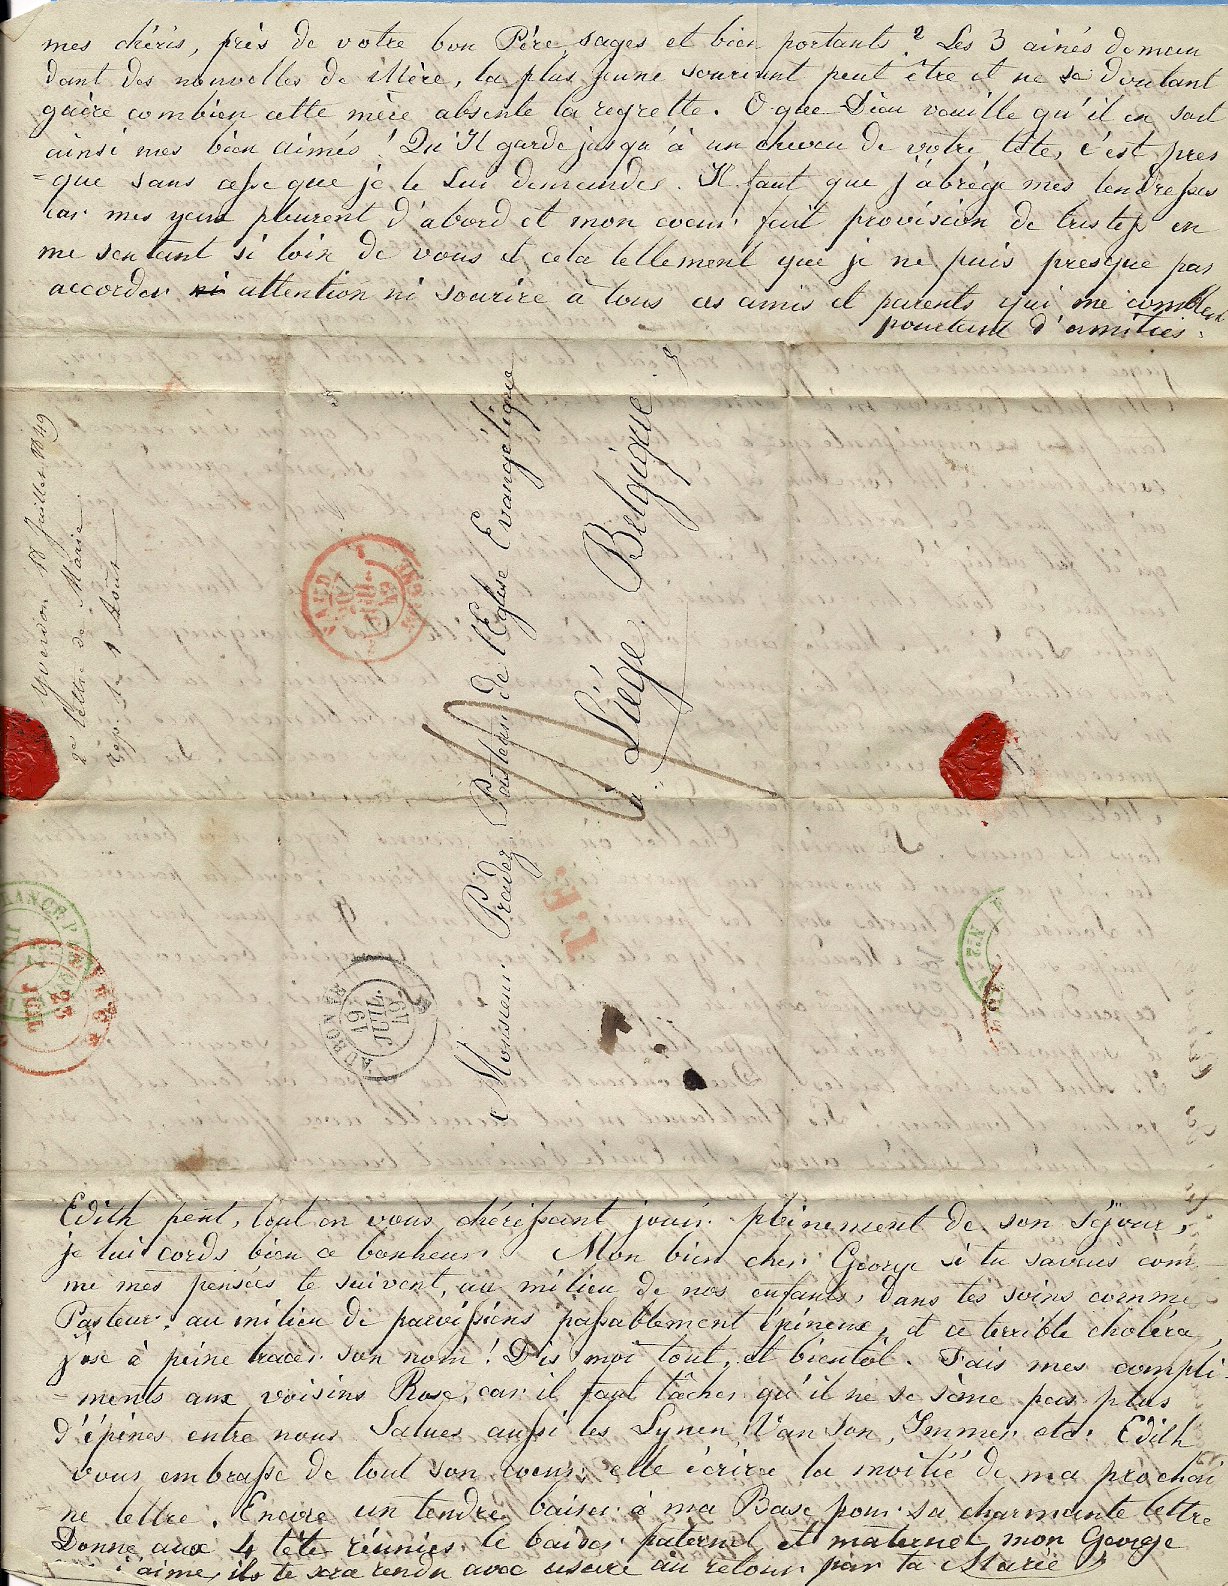 mes chéris, près de votre bon Père, sages et bien portants ? Les 3 ainés deman
dant des nouvelles de Mère, la plus jeune souriant peut être et ne se doutant
guère combien cette mère absente la regrette. O que Dieu veuille qu'il en soit
ainsi mes bien aimés ! Qu'Il garde jusqu'à un cheveu de votre tête, c'est pres
=que sans cesse que je le Lui demande. Il faut que j'abrège mes tendresses
car mes yeux pleurent d'abord et mon coeur fait provision de tristesse en
me sentant si loin de vous et cela tellement que je ne puis presque pas
accorder ni attention ni sourire à tous ces amis et parents qui me comblent
pourtant d'amitiés.
Yverdon 18 Juillet 1849
2e lettre de Marie
rép. le 1 Août
Monsieur Pradez Pasteur de l'Eglise Evangélique
à Liége, Belgique
VAUD
L.E.
AUBONNE
19
JUIL.
49
FRANCE P
LIEGE
23
JUIL
Edith peut, tout en vous chérissant jouir pleinement de son séjour,
je lui cords bien ce bonheur. Mon bien cher George si tu savais com
me mes pensées te suivent, au milieu de nos enfants, dans tes soins comme
Pasteur, au milieu de paroissiens passablement épineux, et ce terrible choléra,
j'ose à peine tracer son nom ! Dis moi tout, et bientôt. Fais mes compli-
=ments aux voisins Rose, car il faut tâcher qu'il ne se sème pas plus
d'épines entre nous Salues aussi les Lynen, Van Son, Immer etc. Edith
vous embrasse de tout son coeur, elle écrira la moitié de ma prochai
ne lettre. Encore un tendre baiser à ma Base pour sa charmante lettre
Donne aux 4 tête réunies le baiser paternel et maternel mon George
aimé, ils te sera rendu avec usure au retour par ta Marie